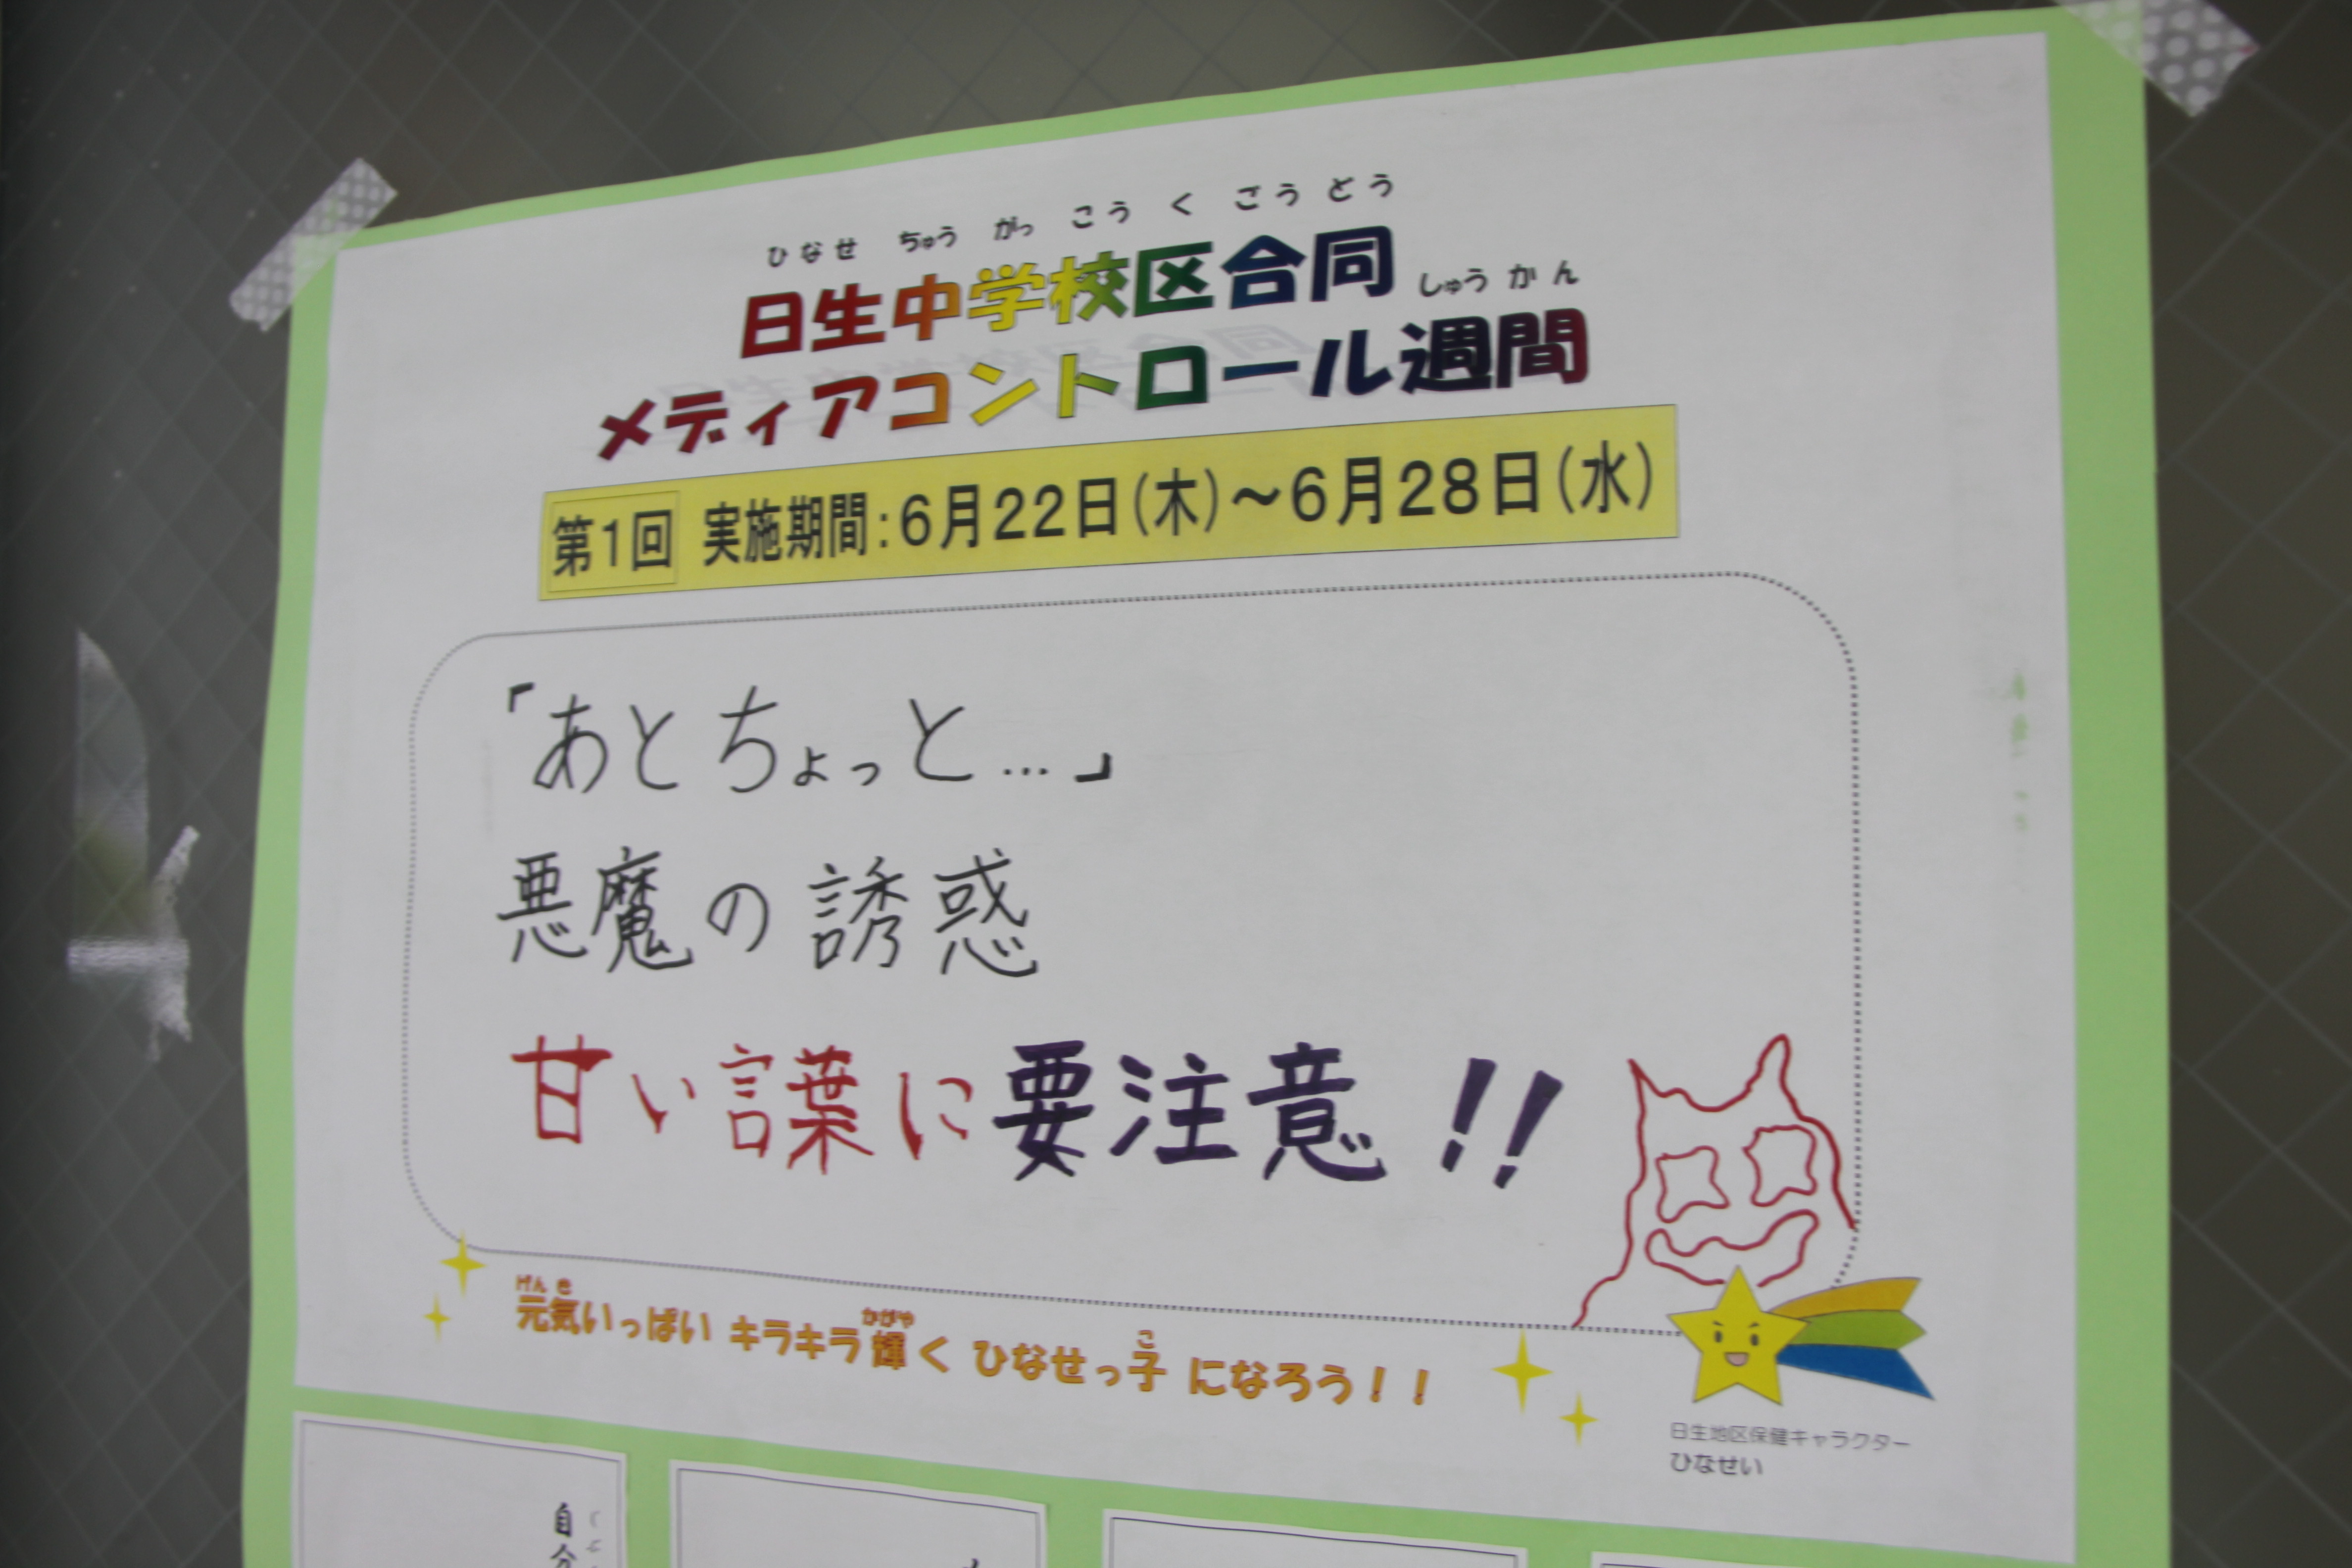 ひなせ ちゅう がっ こう く ごう どう
日生中学校区合同
しゅう かん
メディアコントロール週間
第1回 実施期間:6月22日(木)~6月28日(水)
「あとちょっと…」
悪魔の誘惑
甘い言葉に要注意!!
げん き かがや こ
元気いっぱい キラキラ輝く ひなせっ子 になろう!!
日生地区保健キャラクター
ひなせい
自分